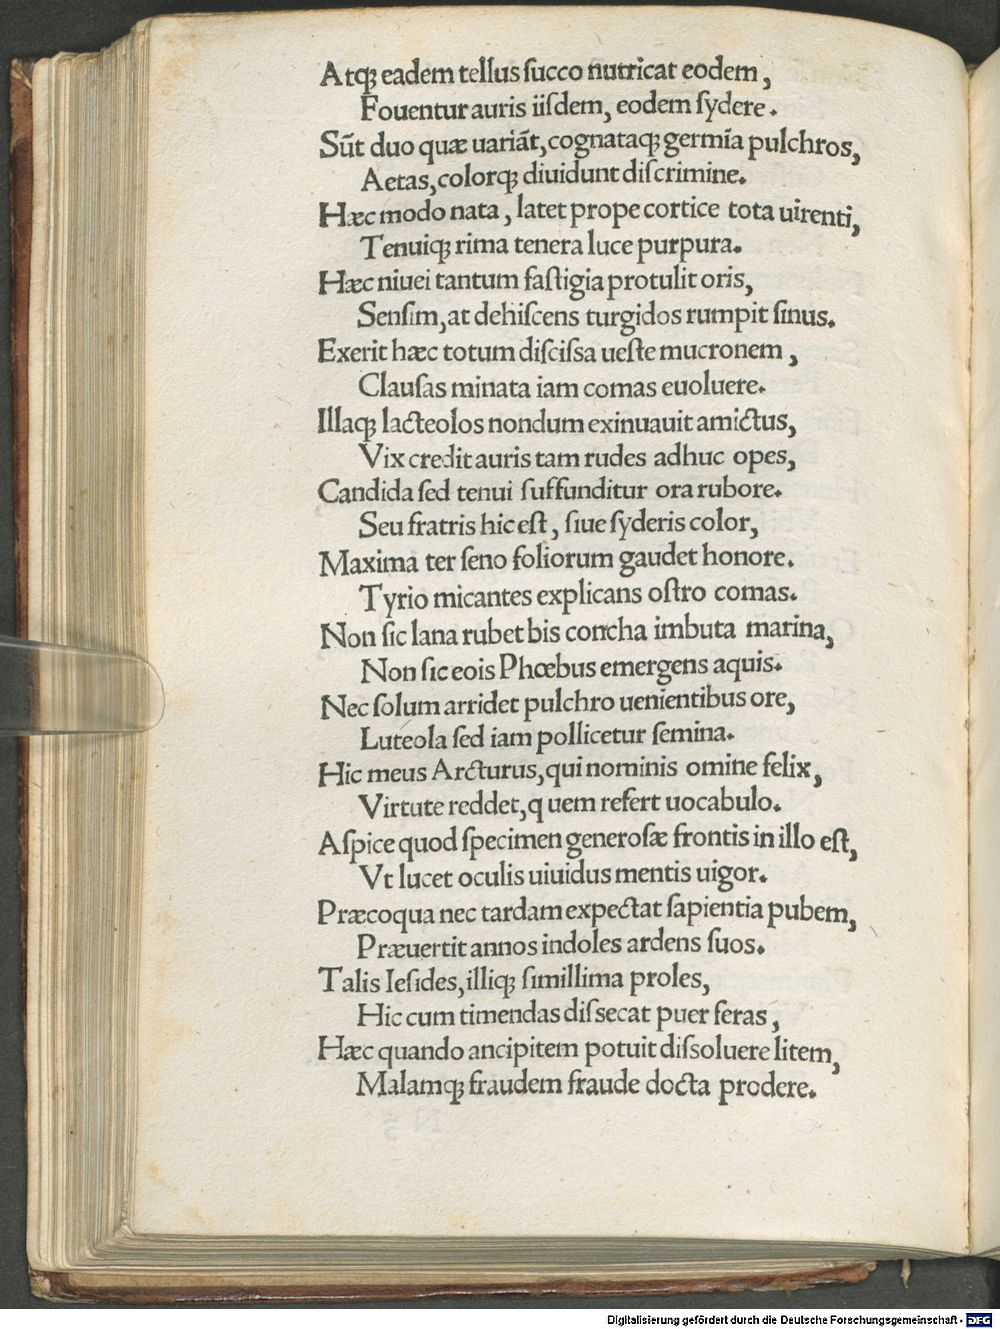 Atqꝫ eadem tellus ſucco nutricat eodem,
Fouentur auris iiſdem, eodem ſydere.
Sūt duo quæ uariāt, cognataqꝫ germīa pulchros,
Aetas, colorqꝫ diuidunt diſcrimine.
Hæc modo nata, latet prope cortice tota uirenti,
Tenuiqꝫ rima tenera luce purpura.
Hæc niuei tantum faſtigia protulit oris,
Senſim, at dehiſcens turgidos rumpit ſinus.
Exerit hæc totum diſciſſa ueſte mucronem,
Clauſas minata iam comas euoluere.
Illaqꝫ lacteolos nondum exinuauit amictus,
Vix credit auris tam rudes adhuc opes,
Candida ſed tenui ſuffunditur ora rubore.
Seu fratris hic eſt, ſiue ſyderis color,
Maxima ter ſeno foliorum gaudet honore.
Tyrio micantes explicans oſtro comas.
Non ſic lana rubet bis concha imbuta marina,
Non ſic eois Phœbus emergens aquis.
Nec ſolum arridet pulchro uenientibus ore,
Luteola ſed iam pollicetur ſemina.
Hic meus Arcturus, qui nominis omine felix,
Virtute reddet, quem refert uocabulo.
Aſpice quod ſpecimen generoſæ frontis in illo eſt,
Vt lucet oculis uiuidus mentis uigor.
Præcoqua nec tardam expectat ſapientia pubem,
Præuertit annos indoles ardens ſuos.
Talis Ieſides, illiqꝫ ſimillima proles,
Hic cum timendas diſſecat puer feras,
Hæc quando ancipitem potuit diſſoluere litem,
Malamqꝫ fraudem fraude docta prodere.
Digitalisierung gefördert durch die Deutsche Forschungsgemeinschaft - DFG